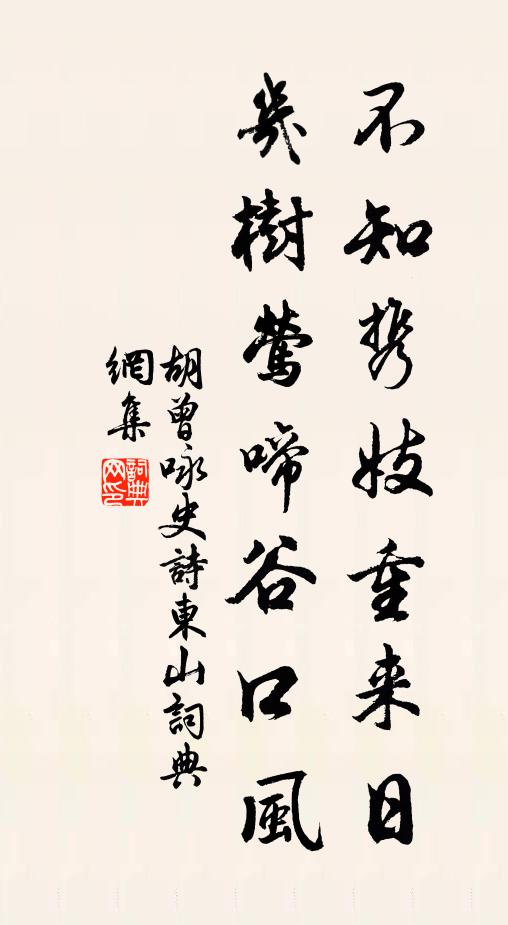 不知携妓重来日
幾樹鶯啼谷口風
胡曾咏史詩東山詞典
網集
詞典
网印